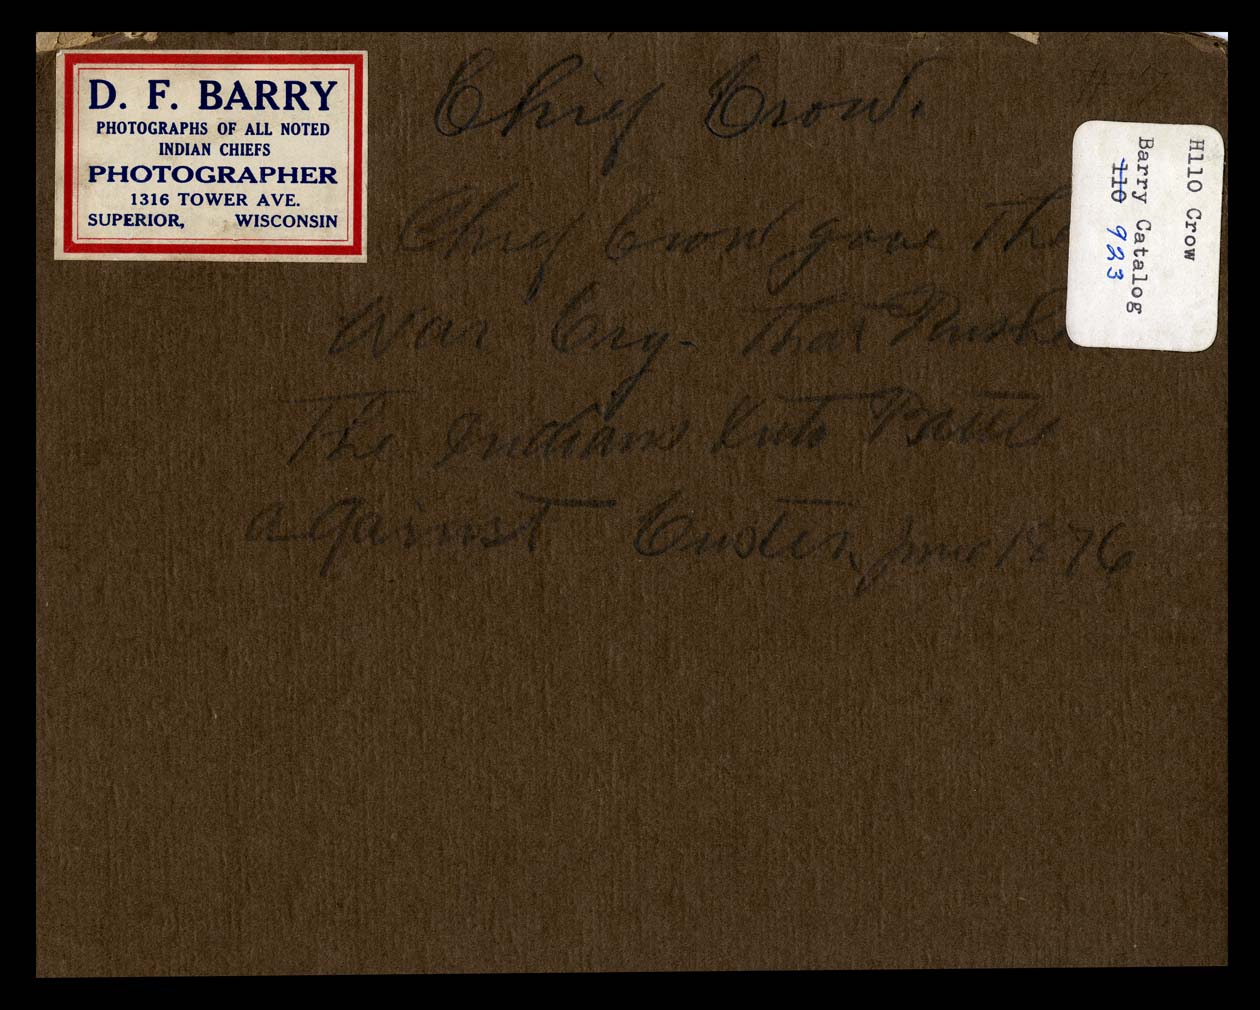 D. F. BARRY
PHOTOGRAPHS OF ALL NOTED
INDIAN CHIEFS
PHOTOGRAPHER
1316 TOWER AVE.
SUPERIOR, WISCONSIN
Chief Crow.
Chief Crow gave The
War Cry - That
The Indians Into Battle
against Custer, June 1876
H110 Crow
Barry Catalog
110 923